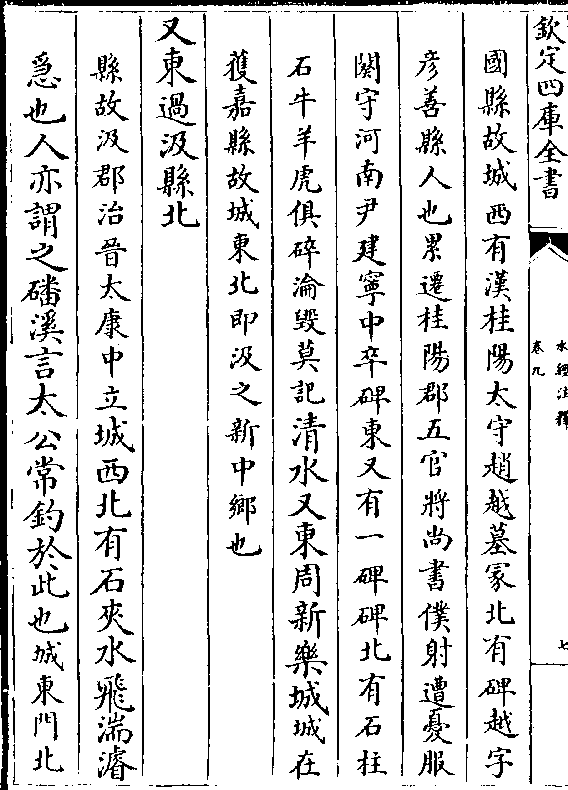 欽定四庫全書
水經注釋
卷九
七
國縣故城西有漢桂陽太守趙越墓冢北有碑越字
彦善縣人也累遷桂陽郡五官將尚書僕射遭憂服
闋守河南尹建寧中卒碑東又有一碑碑北有石柱
石牛羊虎俱碎淪毀莫記清水又東周新樂城城在
獲嘉縣故城東北即汲之新中鄉也
又東過汲縣北
縣故汲郡治晉太康中立城西北有石夾水飛湍濬
急也人亦謂之磻溪言太公常釣於此也城東門北